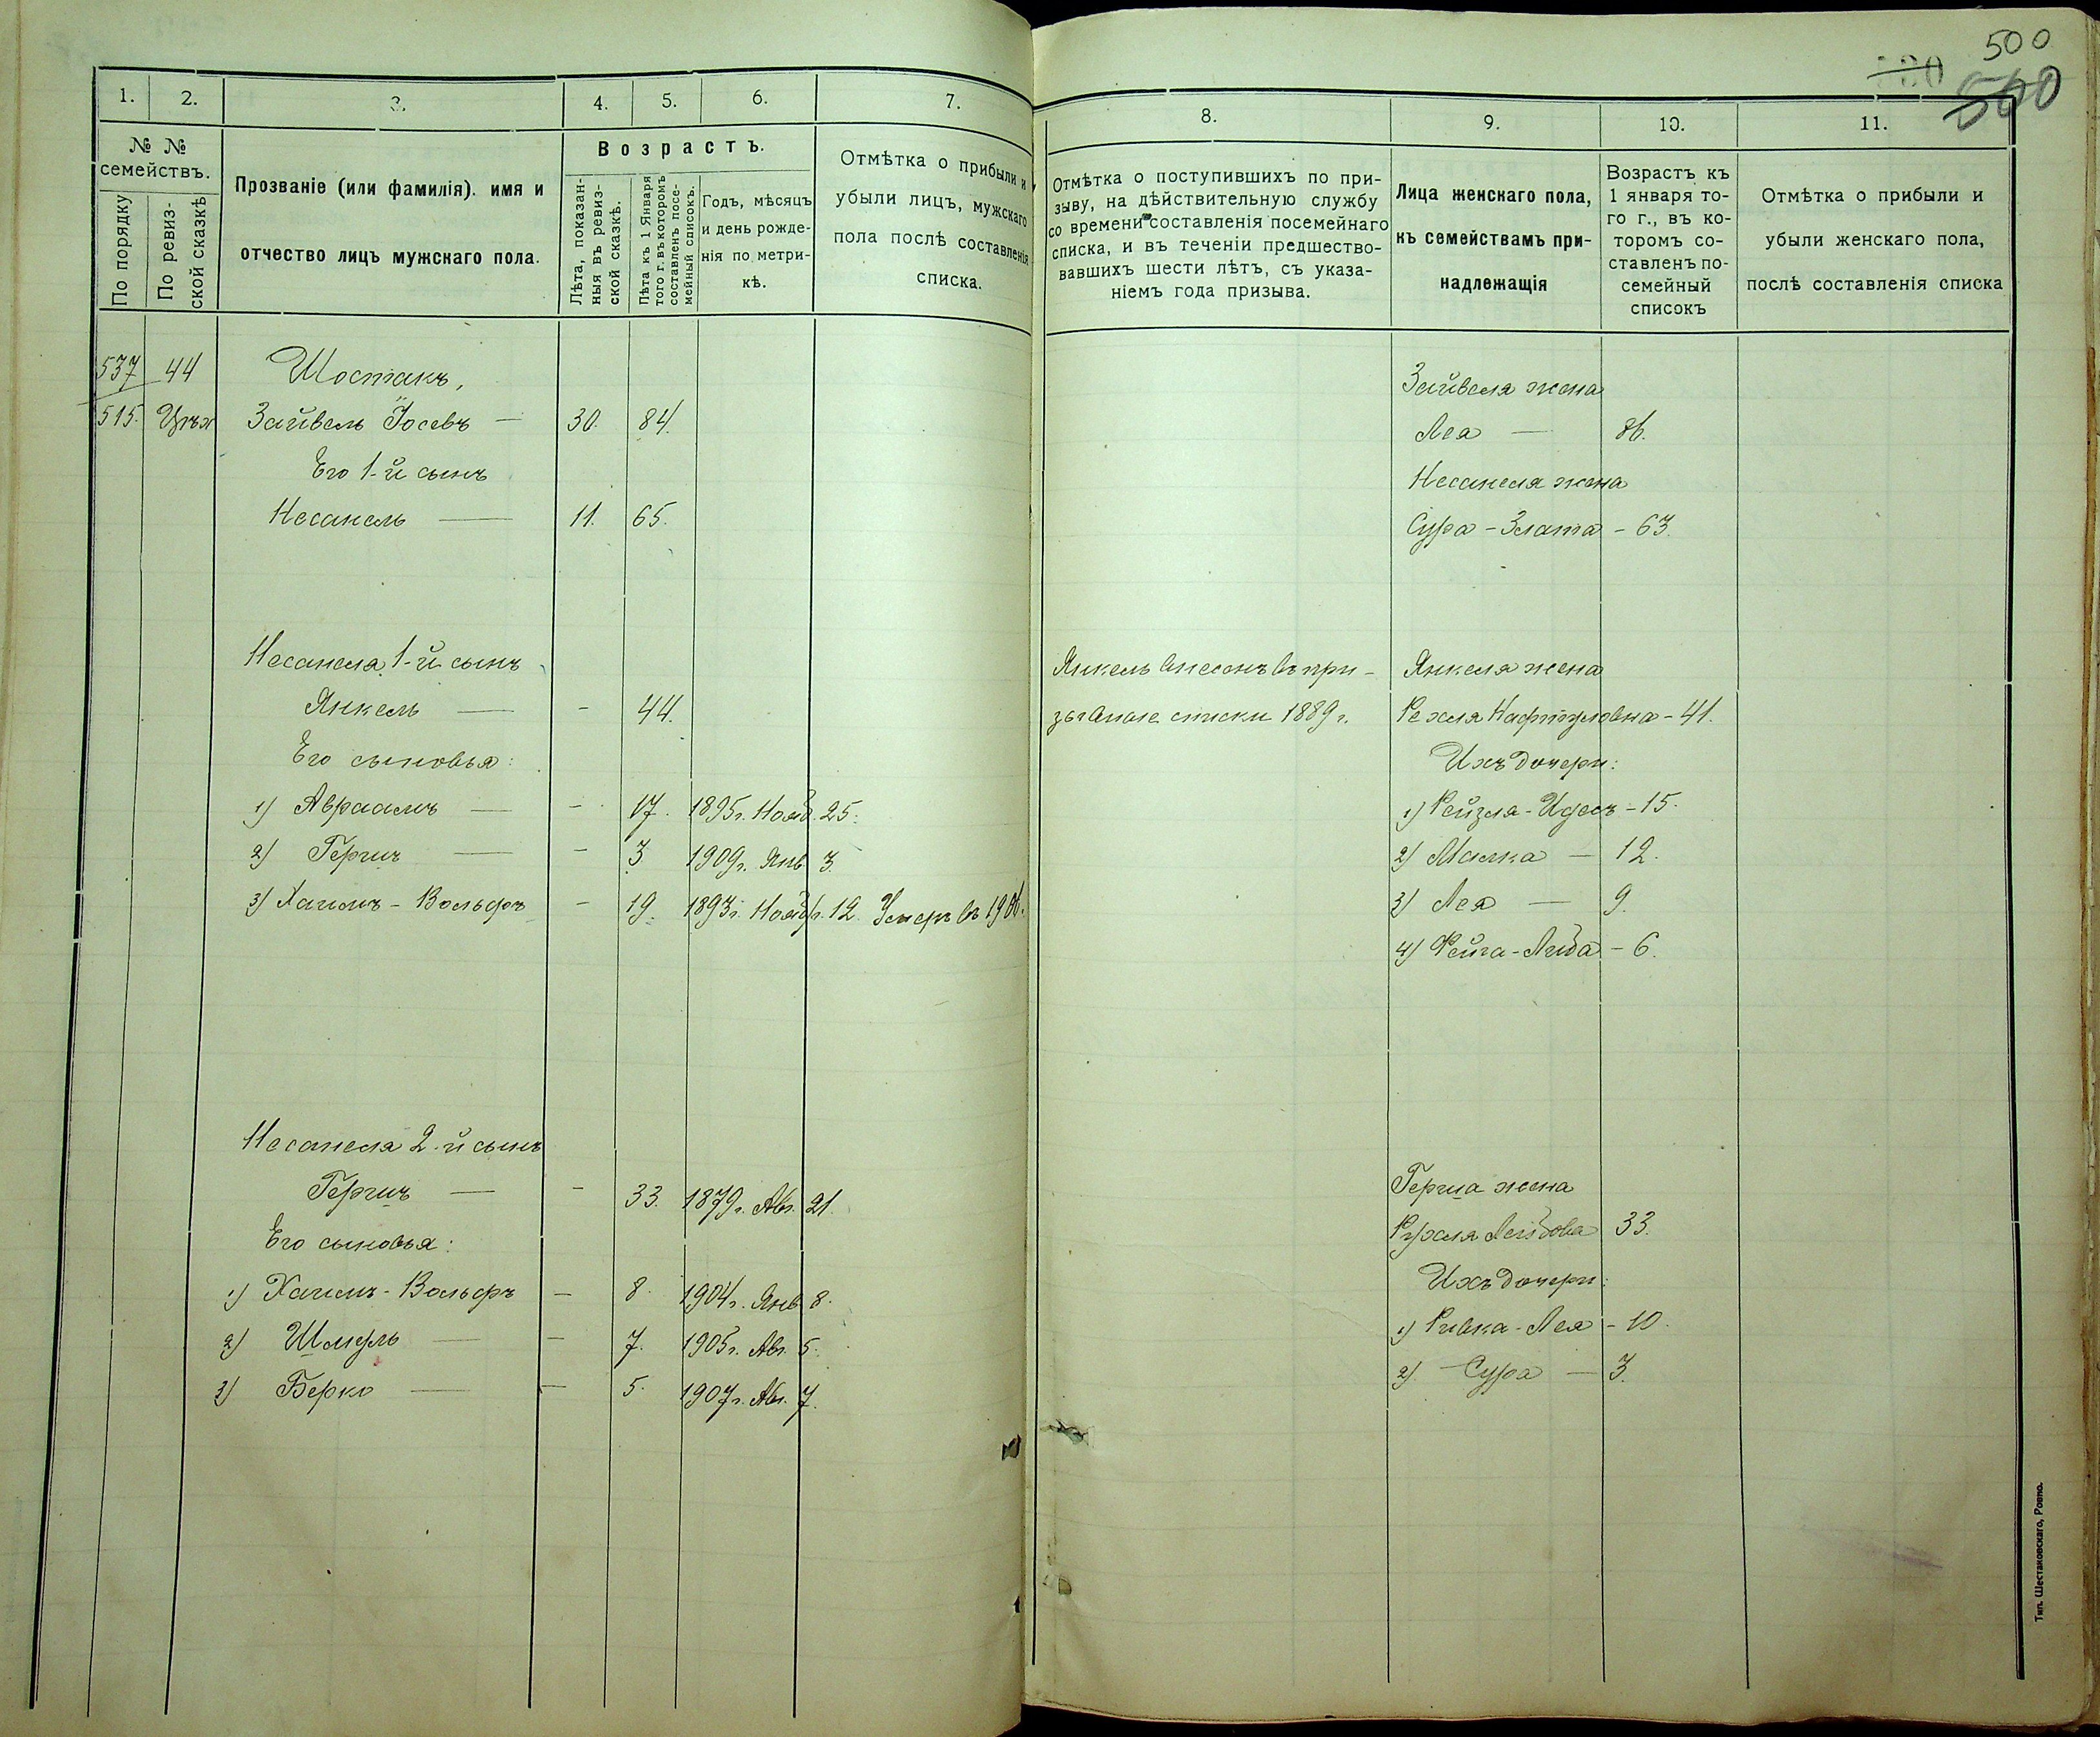 500
500
1.
2.
3.
4.
5.
6.
7.
№ №
семействъ.
По порядку
По ревиз-
ской сказкѣ
Прозваніе (или фамилія). имя и
отчество лицъ мужскаго пола.
Возрастъ.
Лѣта, показан-
ныя въ ревиз-
ской сказкѣ.
Лѣта къ 1 Января
того г. въ которомъ
составленъ посе-
мейный списокъ.
Годъ, мѣсяцъ
и день рожде-
нія по метри-
кѣ.
Отмѣтка о прибыли и
убыли лицъ, мужскаго
пола послѣ составленія
списка.
537 44 Шостакъ,
515. Зайвель Іосевъ — 30. 84.
Его 1-й сынъ
Несанель — 11. 65.
Несанеля 1-й сынъ
Янкель — - 44.
Его сыновья:
1) Авраамъ — - 17. 1895 г. Нояб. 25.
2) Герш — - 3 1909 г. Янв. 3.
3) Хаимъ-Вольфъ - 19. 1893 г. Ноябр. 12. Умеръ въ 1906.
Несанеля 2-й сынъ
Гершъ — - 33. 1879 г. Авг. 21.
Его сыновья:
1) Хаимъ-Вольфъ — 8. 1904 г. Янв. 8.
2) Шмуль — — 7. 1905 г. Авг. 5.
3) Берко — — 5. 1907 г. Авг. 7.
8.
9.
10.
11.
Отмѣтка о поступившихъ по при-
зыву, на дѣйствительную службу
со времени составленія посемейнаго
списка, и въ теченіи предшество-
вавшихъ шести лѣтъ, съ указа-
ніемъ года призыва.
Лица женскаго пола,
къ семействамъ при-
надлежащія
Возрастъ къ
1 января то-
го г., въ ко-
торомъ со-
ставленъ по-
семейный
списокъ
Отмѣтка о прибыли и
убыли женскаго пола,
послѣ составленія списка
Зайвеля жена
Лея — 86.
Несанеля жена
Сура-Злата - 63.
Янкель внесенъ въ при- Янкеля жена
зывные списки 1889 г. Рехля Нафтуловна - 41.
Ихъ дочери:
1) Рейзля-Идесъ - 15.
2) Малка — 12.
3) Лея — 9.
4) Фейга-Либа - 6.
Герша жена
Рухля Лейбова 33.
Ихъ дочери:
1) Ривка-Лея - 10.
2) Сура — 3.
Тип. Шестаковскаго, Ровно.